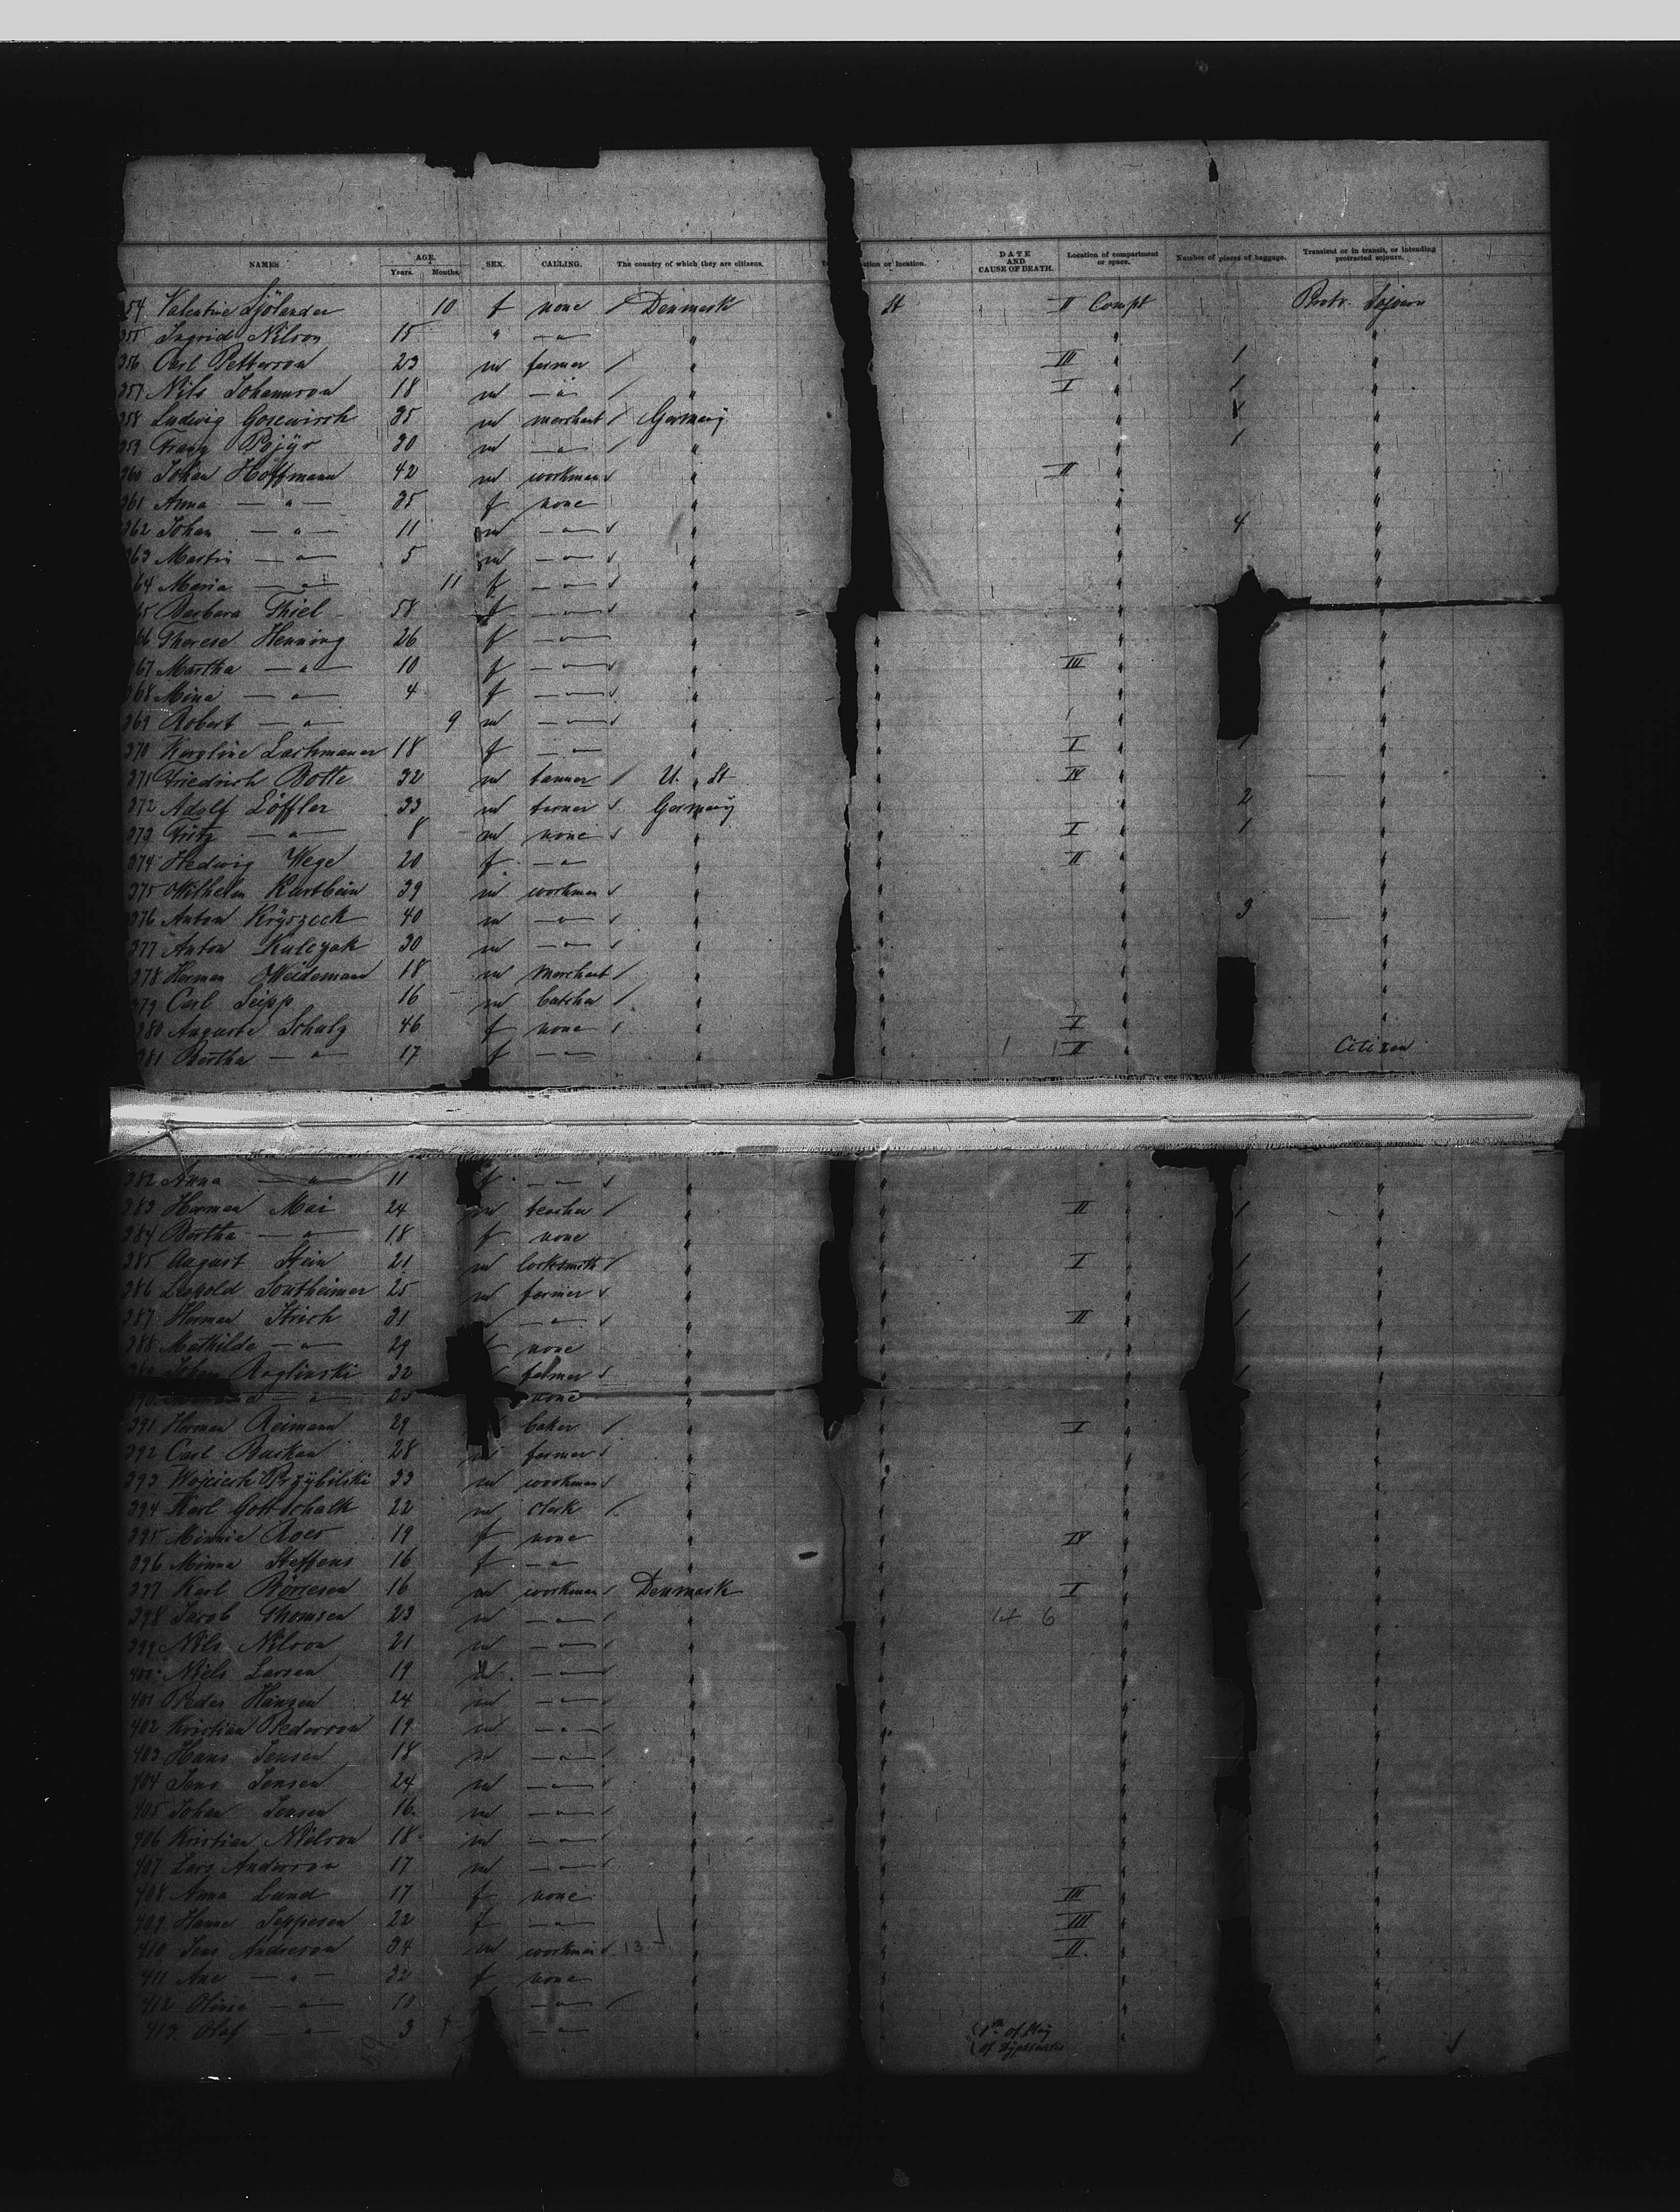 NAMES AGE. SEX. CALLING. The country of which they are citizens. ation or location. DATE AND CAUSE OF DEATH. Location of compartment or space. Number of pieces of baggage. Transient or in transit, or intending protracted sojourn.
Years. Months.
54 Valentine Sjölander 10 f none / Denmark St II Compt Protr. Sojourn
355 Ingrid Nilson 15 " — " — "
356 Carl Petterson 23 m farmer / " III " 1 "
357 Nils Johannson 18 m — " — / " I " 1 "
358 Ludwig Gosewisch 35 m merchant / Germany " "
359 Franz 30 m — " — / " " 1 "
360 Johan Hoffmann 42 m workman " II " "
361 Anna — " — 35 f none " " "
362 Johan — " — 11 m — " — " " 4 "
363 Martin — " — 5 m — " — " " "
64 Maria — " — 11 f — " — " " "
65 Barbara Thiel 58 f — " — "
66 Therese Henning 26 f — " — " " " "
67 Martha — " — 10 f — " — " " III " "
368 Mina — " — 4 f — " — " " " "
369 Robert — " — 9 m — " — " " " "
370 Karoline Lachmaner 18 f — " — " " I " 1 "
371 Friedrich Bolte 32 m tanner / U. St " IV " — "
372 Adolf Löffler 33 m Germany " " 2 "
373 Fritz — " — 8 m none " " I " 1 "
374 Hedwig Wege 20 f — " — " " II " "
375 Wilhelm Kurtbein 39 m workman " " " "
376 Anton Kryszeck 40 m — " — " " " 3 — "
377 Anton Kulczak 30 m — " — " " " "
378 Herman Weidemann 18 m merchant / " " " "
379 Carl Seipp 16 m butcher / " " " "
380 Auguste Schulz 46 f none " " I " "
381 Bertha — " — 17 f — " — " " II " Citizen
382 Anna — " — 11 f — " — " " " "
383 Herman Mai 24 m teacher / " " II " 1 "
384 Bertha — " — 18 f none " " " "
385 August Stein 21 m locksmith / " " I " 1 "
386 Leopold Sontheimer 25 m farmer " " " 1 "
387 Herman Strich 31 — " — " " II " 1 "
388 Mathilde — " — 29 none " " " "
Raglinski 32 farmer " " " 1 "
— " — 25 none " " " "
391 Herman Reimann 29 baker / " " I " "
392 Carl Buskan 28 m farmer " " " "
393 Wojciech Przybilski 33 m workman " " " "
394 Karl Gottschalk 22 m clerk / " " " "
395 Minnie Roes 19 f none " " IV " "
396 Minna Steffens 16 f — " — " " " "
397 Karl Börresen 16 m workman / Denmark " I " "
398 Jacob Thomsen 23 m — " — " " 4 6 " "
399 Nils Nilson 21 m — " — " " " "
400 Niels Larsen 19 m — " — " " " "
401 Peder Hansen 24 m — " — " " " "
402 Kristian Pederson 19 m — " — " " " "
403 Hans Jensen 18 m — " — " " " "
404 Jens Jensen 24 m — " — " " " "
405 Johan Jensen 16 m — " — " " " "
406 Kristian Nielson 18 m — " — " " " "
407 Lars Anderson 17 m — " — " " " "
408 Anna Lund 17 f none " " III " "
409 Hanne Jeppesen 22 f — " — " " III " "
410 Jens Anderson 34 m workman 13 " " II " "
411 Ane — " — 32 f none " " " "
412 — " — 10 — " — " " " "
413 Olaf — " — 3 — " — " " 1st of May " "
of